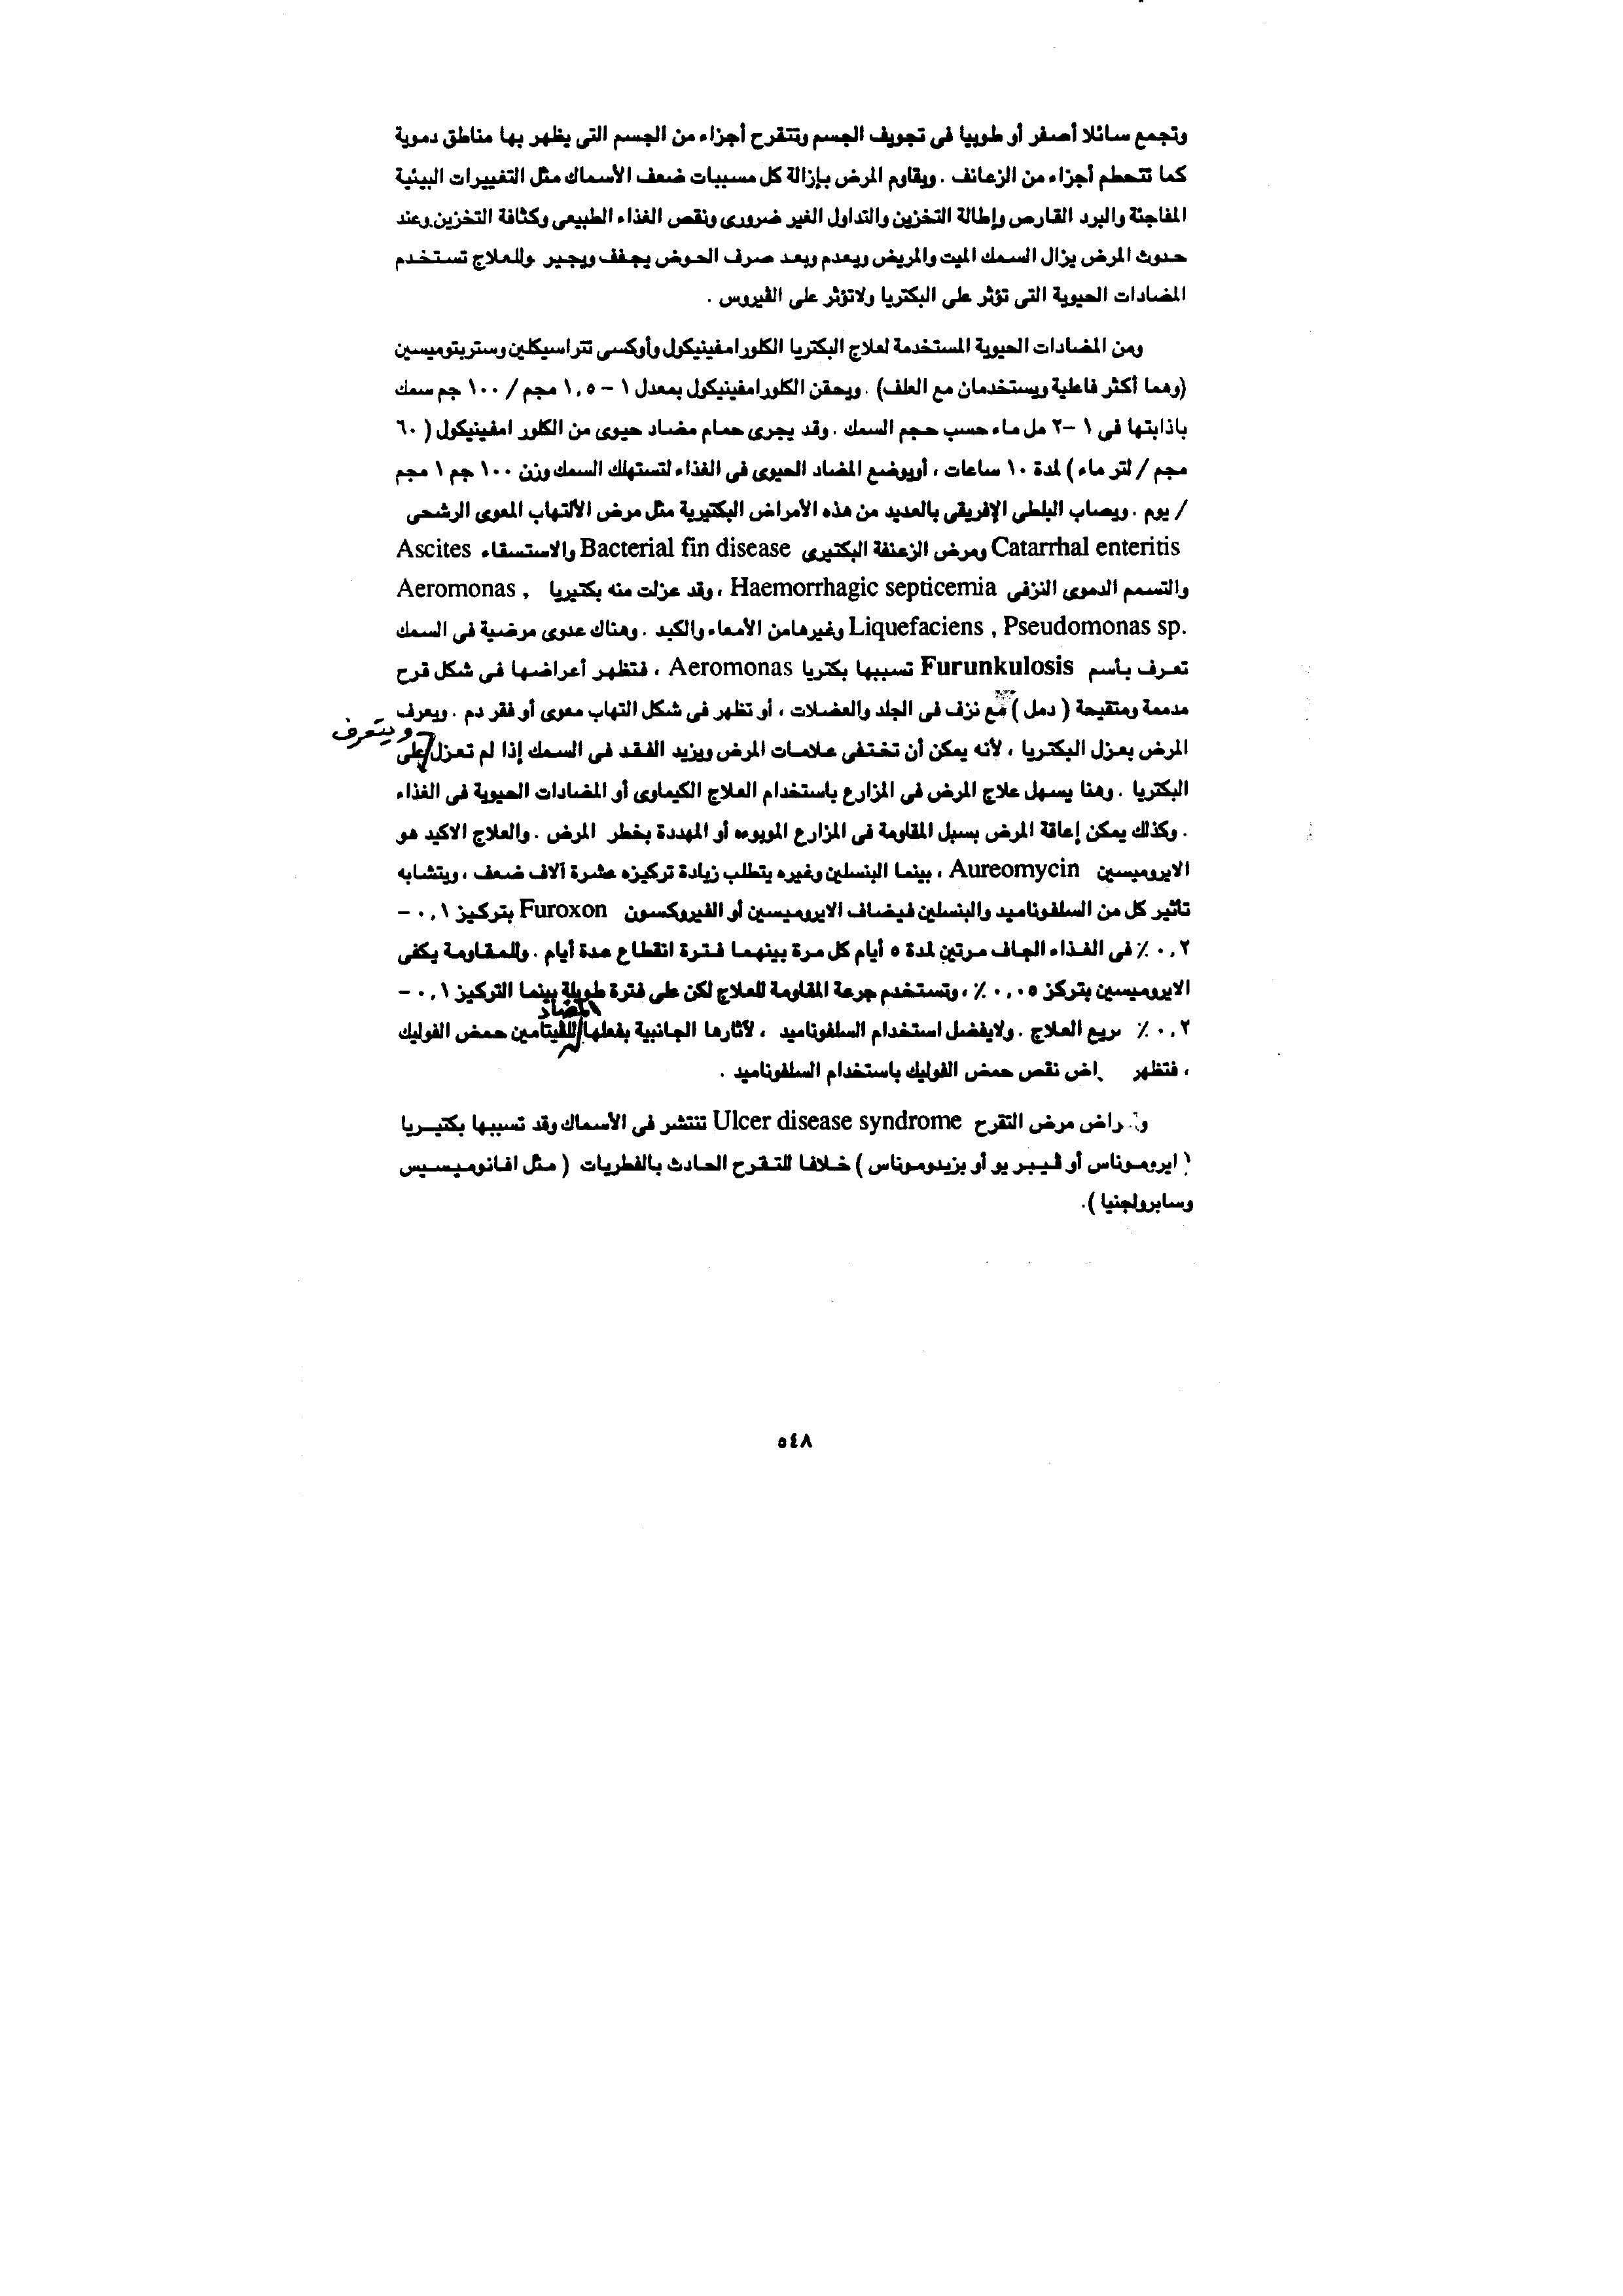 وتجمع سائلا أصفر أو طوبيا فى تجويف الجسم وتتقرح أجزاء من الجسم التى يظهر بها مناطق دموية
كما تتحطم أجزاء من الزعانف . ويقاوم المرض بإزالة كل مسببات ضعف الأسماك مثل التغييرات البيئية
المفاجئة والبرد القارص وإطالة التخزين والتداول الغير ضرورى ونقص الغذاء الطبيعى وكثافة التخزين.وعند
حدوث المرض يزال السمك الميت والمريض ويعدم وبعد صرف الحوض يجفف ويجير وللعلاج تستخدم
المضادات الحيوية التى تؤثر على البكتريا ولاتؤثر على الڤيروس .
ومن المضادات الحيوية المستخدمة لعلاج البكتريا الكلورامفينيكول وأوكسى تتراسيكلين وستربتوميسين
(وهما أكثر فاعلية ويستخدمان مع العلف) . ويحقن الكلورامفينيكول بمعدل ١ – ١,٥ مجم / ١٠٠ جم سمك
باذابتها فى ١ –٢ مل ماء حسب حجم السمك . وقد يجرى حمام مضاد حيوى من الكلور امفينيكول ( ٦٠
مجم / لتر ماء ) لمدة ١٠ ساعات ، أويوضع المضاد الحيوى فى الغذاء لتستهلك السمك وزن ١٠٠ جم ١ مجم
/ يوم . ويصاب البلطى الإفريقى بالعديد من هذه الأمراض البكتيرية مثل مرض الألتهاب المعوى الرشحى
Catarrhal enteritis ومرض الزعنفة البكتيرى Bacterial fin disease والاستسقاء Ascites
والتسمم الدموى النزفى Haemorrhagic septicemia ، وقد عزلت منه بكتيريا Aeromonas ,
Liquefaciens , Pseudomonas sp. وغيرهامن الأمعاء والكبد . وهناك عدوى مرضية فى السمك
تعرف بأسم Furunkulosis تسببها بكتريا Aeromonas ، فتظهر أعراضها فى شكل قرح
مدممة ومتقيحة ( دمل ) مع نزف فى الجلد والعضلات ، أو تظهر فى شكل التهاب معوى أو فقر دم . ويعرف
ويتعرف
المرض بعزل البكتريا ، لأنه يمكن أن تختفى علامات المرض ويزيد الفقد فى السمك إذا لم تعزل على
البكتريا . وهنا يسهل علاج المرض فى المزارع باستخدام العلاج الكيماوى أو المضادات الحيوية فى الغذاء
. وكذلك يمكن إعاقة المرض بسبل المقاومة فى المزارع الموبوءه أو المهددة بخطر المرض . والعلاج الاكيد هو
الايروميسين Aureomycin ، بينما البنسلين وغيره يتطلب زيادة تركيزه عشرة آلاف ضعف ، ويتشابه
تأثير كل من السلفوناميد والبنسلين فيضاف الايروميسين أو الفيروكسون Furoxon بتركيز ٠,١ –
٠,٢ ٪ فى الغذاء الجاف مرتين لمدة ٥ أيام كل مرة بينهما فترة انقطاع عدة أيام . وللمقاومة يكفى
الايروميسين بتركز ٠,٠٥ ٪ ، وتستخدم جرعة المقاومة للعلاج لكن على فترة طويلة بينما التركيز ٠,١ –
المضاد
٠,٢ ٪ سريع العلاج . ولايفضل استخدام السلفوناميد ، لآثارها الجانبية بفعلها للڤيتامين حمض الفوليك
، فتظهر اض نقص حمض الفوليك باستخدام السلفوناميد .
راض مرض التقرح Ulcer disease syndrome تنتشر فى الأسماك وقد تسببها بكتيريا
( ايروموناس أو ڤيبر يو أو بزيدوموناس ) خلافا للتقرح الحادث بالفطريات ( مثل افانوميسيس
وسابرولجنيا ).
٥٤٨